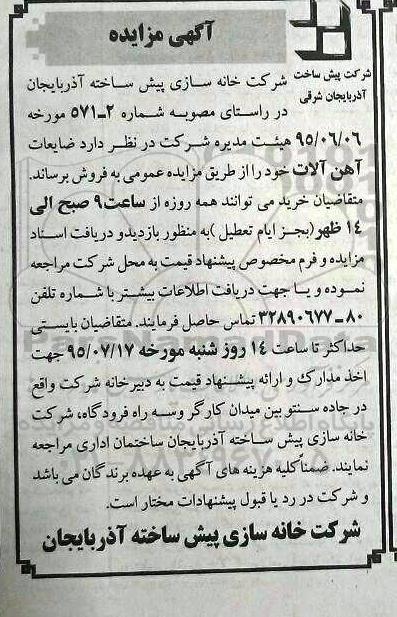 آگهی مزایده
شرکت پیش ساخت
آذربایجان شرقی
شرکت خانه سازی پیش ساخته آذربایجان
در راستای مصوبه شماره ۲ـ۵۷۱ مورخه
۹۵/۰۶/۰۶ هیئت مدیره شرکت در نظر دارد ضایعات
آهن آلات خود را از طریق مزایده عمومی به فروش برساند.
متقاضیان خرید می توانند همه روزه از ساعت ۹ صبح الی
۱۴ ظهر(بجز ایام تعطیل )به منظور بازدیدو دریافت اسناد
مزایده و فرم مخصوص پیشنهاد قیمت به محل شرکت مراجعه
نموده و یـا جهت دریافت اطلاعات بیشتر با شماره تلفن
۸۰ـ۳۲۸۹۰۶۷۷ تماس حاصل فرمایند. متقاضیان بایستی
حداکثر تا ساعت ۱۴ روز شنبه مورخه ۹۵/۰۷/۱۷ جهت
اخذ مدارک و ارائه پیشـنهاد قیمت به دبیرخانه شرکت واقع
در جاده سنتو بین میدان کارگر وسـه راه فرودگاه، شرکت
خانه سازی پیش ساخته آذربایجان ساختمان اداری مراجعه
نمایند. ضمناً کلیه هزینه های آگهی به عهده برندگان می باشد
و شرکت در رد یا قبول پیشنهادات مختار است.
شرکت خانه سازی پیش ساخته آذربایجان